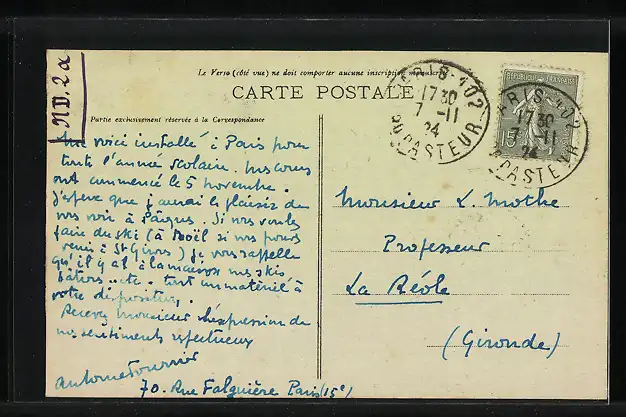 ND. 2a
Le Verso (côté vue) ne doit comporter aucune inscription manuscrite
CARTE POSTALE
Partie exclusivement réservée à la Correspondance
Me voici installé à Paris pour
toute l'année scolaire. Mes cours
ont commencé le 5 novembre.
J'espère que j'aurai le plaisir de
vous voir à Pâques. Si vous voulez
faire du ski (à Noël si vous pouvez
venir à St Girons) je vous rappelle
qu'il y a à la maison mes skis
batons.. etc. tout un matériel à
votre disposition.
Recevez monsieur l'expression de
mes sentiments respectueux
Antoine Fournier
70. Rue Falguière Paris (15e)
PARIS-102
17 30
7 -11
24
BD PASTEUR
REPUBLIQUE FRANÇAISE
15c
PARIS-102
17 30
7 -11
24
PASTEUR
Monsieur L. Mothe
Professeur
La Réole
(Gironde)